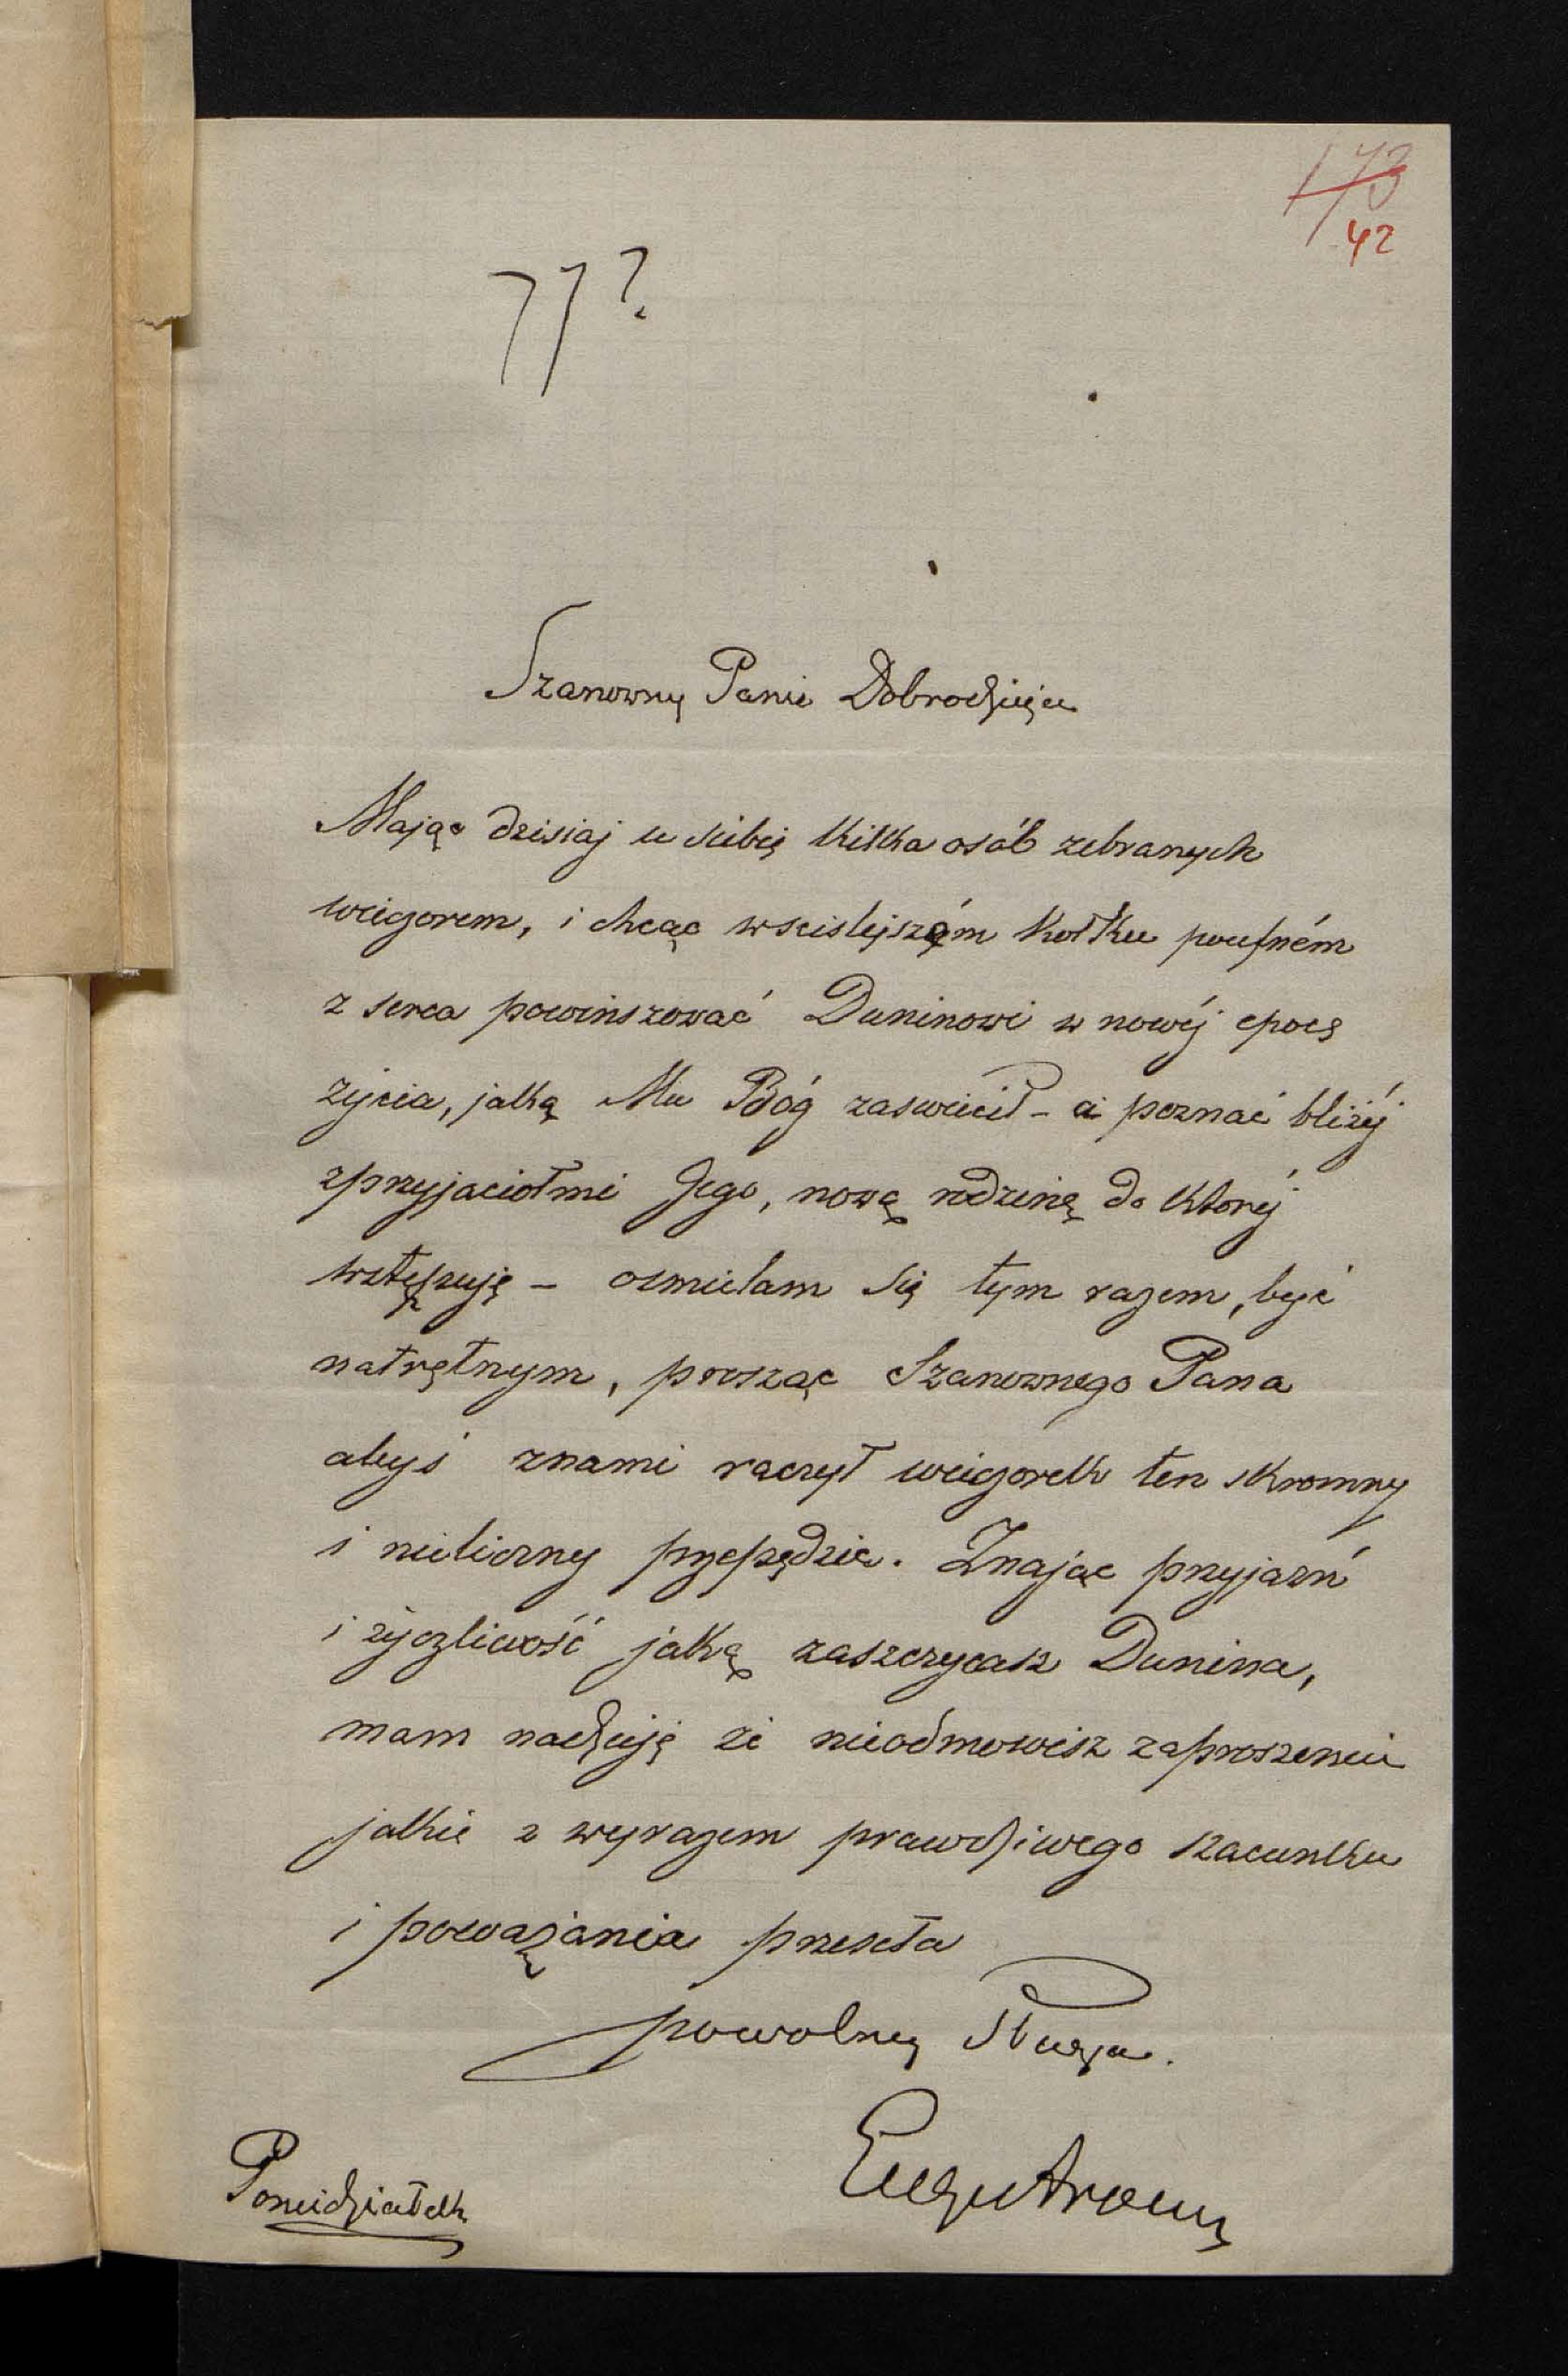 173
42
77?
Szanowny Panie Dobrodzieju
Mając dzisiaj u siebie kilka osób zebranych
wieczorem, i chcąc wscislejszém kołku poufném
z serca powinszować Duninowi w nowéj epoce
życia, jaką Mu Bóg zaswiécił – a poznać bliżéj
zprzyjaciołmi Jego, nową rodzinę do któréj
wstępuję – osmielam się tym razem, być
natrętnym, prosząc Szanownego Pana
abyś znami raczył wieczorek ten skromny
i nieliczny przepędzić. Znając przyjazń
i życzliwość jaką zaszczycasz Dunina,
mam nadzieję że nieodmowisz zaproszeniu
jakie z wyrazem prawdziwego szacunku
i poważania przeseła
powolny Sługa.
Poniedziałek